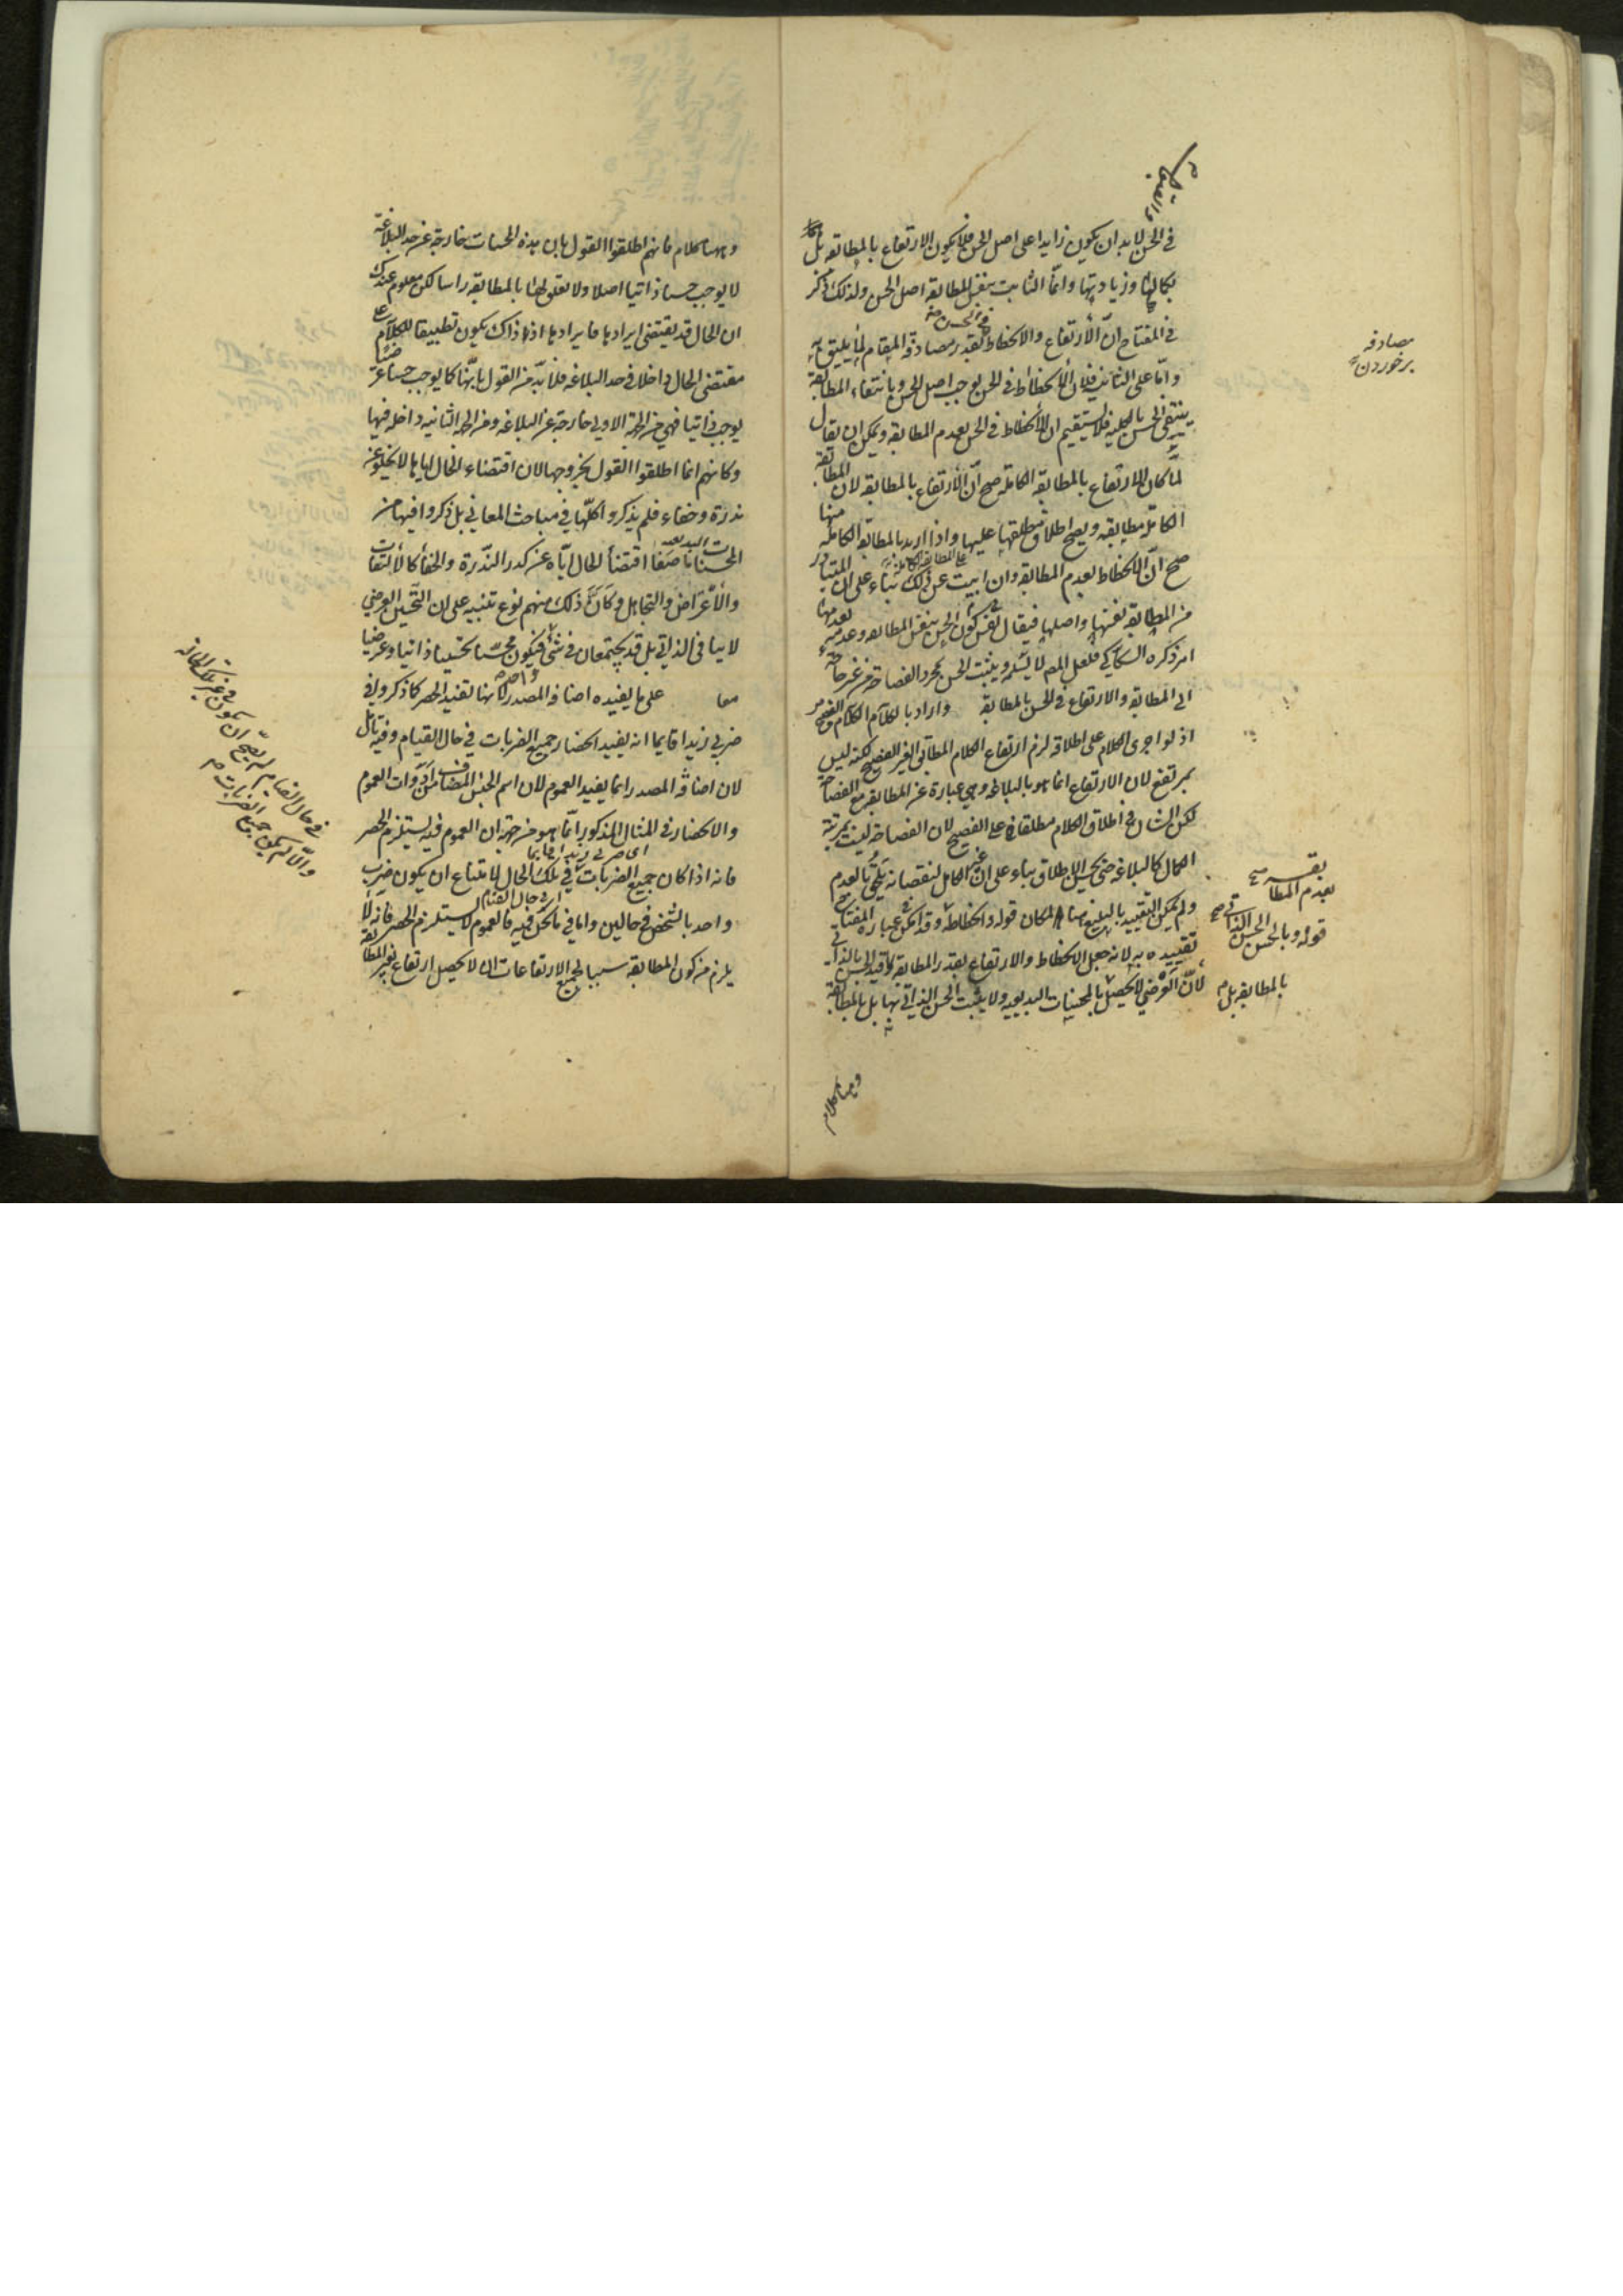 في الحسن لا بد ان يكون زايدا على اصل الحسن فلا يكون الارتفاع بالمطابقة بل
بكمالها وزيادتها وانما الثابت بنفس المطابقة اصل الحسن ولذلك ذكر
في المفتاح ان الارتفاع والانحطاط بقدر مصادفة المقام لما يليق به
واما على الثاني فلان الانحطاط في الحسن يوجب اصل الحسن وبانتفاء المطابقة
ينتفي الحسن بالكلية فلا يستقيم ان الانحطاط في الحسن بعدم المطابقة ويمكن ان يقال
لما كان الارتفاع بالمطابقة الكاملة صح ان الارتفاع بالمطابقة لان المطابقة
الكاملة مطابقة ويصح اطلاق مطلقها عليها واذا اريد بالمطابقة الكاملة منها
صح ان الانحطاط بعدم المطابقة وان ابيت عن ذلك بناء على ان المتبادر
من المطابقة نفسها واصلها فيقال كون الحسن بنفس المطابقة وعدمه بعدمها
امر ذكره السكاكي فلعل المص لا يسلمه ويثبت الحسن بمجرد الفصاحة من غير حاجة
الى المطابقة والارتفاع في الحسن بالمطابقة واراد بالكلام الكلام الفصيح
اذ لو اجرى الكلام على اطلاقه لزم ارتفاع الكلام المطابق الغير الفصيح لكنه ليس
بمرتفع لان الارتفاع انما هو بالبلاغة وهي عبارة عن المطابقة مع الفصاحة
لكن الشان في اطلاق الكلام مطلقا على الفصيح لان الفصاحة ليست بمرتبة
الكمال كالبلاغة حتى يحسن الاطلاق بناء على ان غير الكامل لنقصانه يلحق بالعدم
ولم يمكن التقييد بالبليغ هنا لمكان قوله وانحطاطه وقد امكن في عبارة المفتاح
تقييده به لانه جعل الانحطاط والارتفاع بقدر المطابقة وقيد الحسن بالذاتي
لان العرضي يحصل بالمحسنات البديعية ولا يثبت الحسن الذاتي بها بل بالمطابقة
وههنا كلام
مصادفه
برخوردن
بعدم المطا
بقه
قوله وبالحسن الحسن الذاتي صح
بالمطابقة بل
وههنا كلام فانهم اطلقوا القول بان هذه المحسنات خارجة عن حد البلاغة
لا يوجب حسنا ذاتيا اصلا ولا تعلق لها بالمطابقة راسا لكن معلوم عندك
ان الحال قد يقتضي ايرادها فايرادها اذ ذاك يكون تطبيقا للكلام على
مقتضى الحال داخلا في حد البلاغة فلا بد من القول بانها كما يوجب حسنا عرضيا
يوجب ذاتيا فهي من الجهة الاولى خارجة عن البلاغة ومن الجهة الثانية داخلة فيها
وكانهم انما اطلقوا القول بخروجها لان اقتضاء الحال اياها لا يخلو عن
ندرة وخفاء فلم يذكروا كلها في مباحث المعاني بل ذكروا فيها من
المحسنات البديعية ما صفا اقتضاء الحال اياه عن كدر الندرة والخفاء كالالتفات
والاعتراض والتجاهل وكان ذلك منهم نوع تنبيه على ان التحسين العرضي
لا ينافي الذاتي بل قد يجتمعان في شئ واحد فيكون محسنا تحسينا ذاتيا وعرضيا
معا على ما يفيده اضافة المصدر لانها تفيد الحصر كما ذكروا في
ضربي زيدا قايما انه يفيد انحصار جميع الضربات في حال القيام وفيه تامل
لان اضافة المصدر انما يفيد العموم لان اسم الجنس المضاف من ادوات العموم
والانحصار في المثال المذكور انما هو من جهة ان العموم فيه يستلزم الحصر
اي ضربي زيدا قايما
فانه اذا كان جميع الضربات في تلك الحال لامتناع ان يكون ضرب
اي في حال القيام
واحد بالشخص في حالين واما في ما نحن فيه فالعموم لا يستلزم الحصر فانه لا
يلزم من كون المطابقة سببا لجميع الارتفاعات ان لا يحصل ارتفاع بغير المطابقة